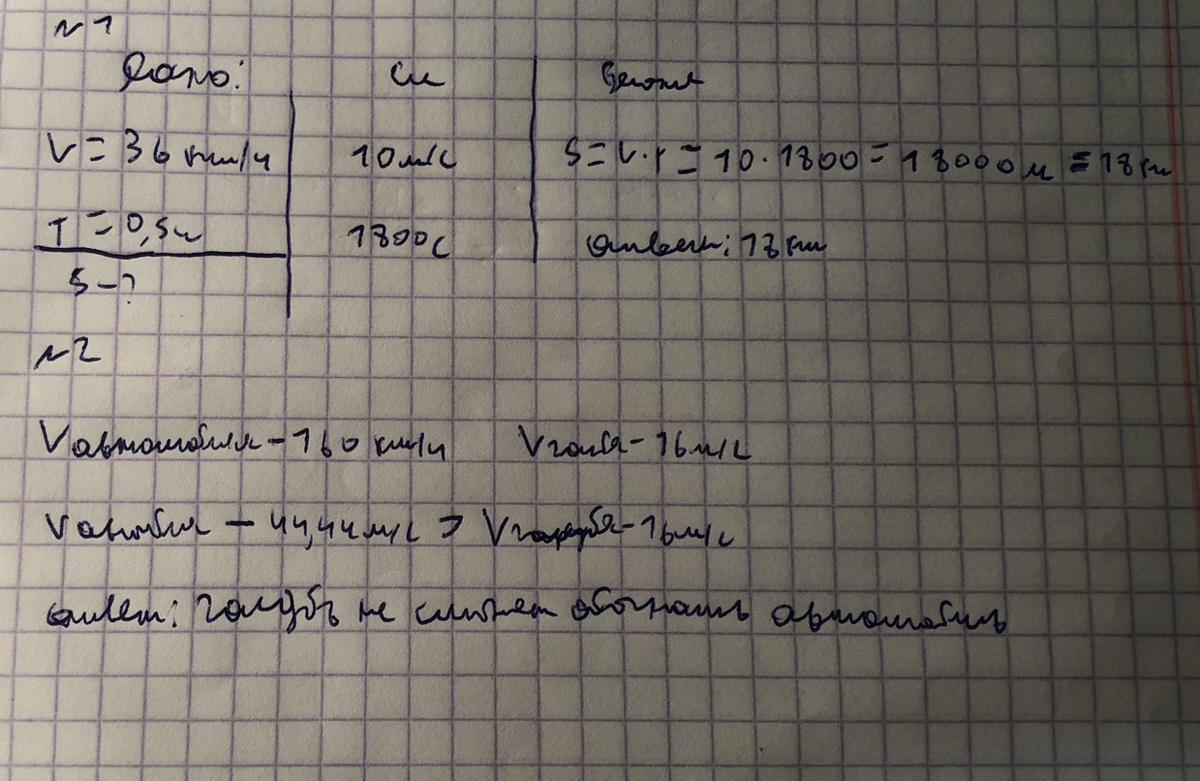 №1
Дано: Си Решение
V = 36 км/ч 10м/с S = V·t = 10·1800 = 18000м = 18км
T = 0,5ч 1800с Ответ: 18км
S - ?
№2
Vавтомобиля - 160 км/ч Vголубя - 16м/с
Vавтомобиля - 44,44м/с > Vголубя - 16м/с
Ответ: голубь не сможет обогнать автомобиль